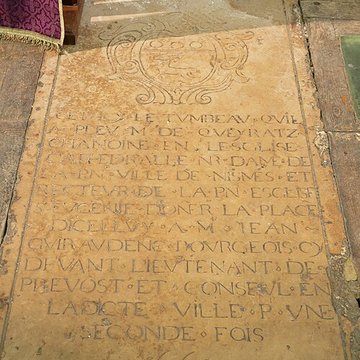 CE EST LE TVMBEAV QVIL
A PLEV M DE QVEYRATZ
CHANOINE EN LESGLISE
CATHEDRALLE NR DAME DE
LA PNT VILLE DE NISMES ET
RECTEVR DE LA PNT ESGLISE
DONER LA PLACE
DICELLVY A M IEAN
GVIRAVDENC BOVRGEOIS CY
DEVANT LIEVTENANT DE
PREVOST ET CONSEVL EN
LADICTE VILLE P VNE
SECONDE FOIS